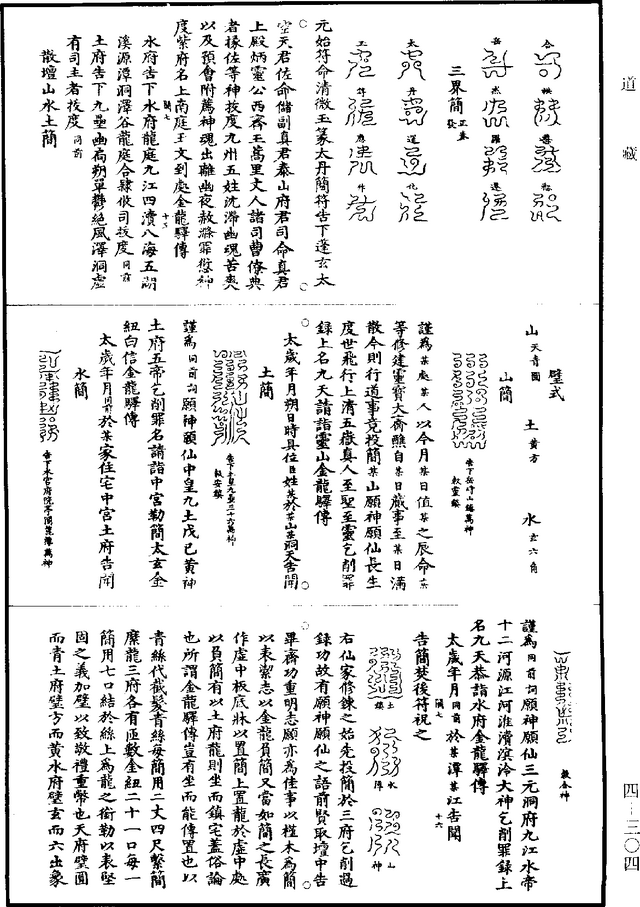 道藏
合
岳
太
玉
然
丹
羅
道
應
化
三界簡
元始符命清微玉篆太丹簡符告下蓬玄太
空天君佐命儲副真君泰山府君司命真君
上殿炳靈公西齊王蒿里丈人諸司曹僚典
者掾佐等神拔度九州五姓沈滯幽魂苦爽
以及預會附薦神魂出離幽夜赦滌罪愆神
度紫府名上南庭玉文到處金龍驛傳
水府告下水府龍庭九江四瀆八海五湖
溪源潭洞澤谷龍庭合肄攸司拔度同前
土府告下九壘幽高朔單鬱絕風澤洞虛
有司主者拔度同前
散壇山水土簡
璧式
山天青圓 土黃方 水玄六角
山簡
告下岳府山神萬神敕靈鎮
謹為某處某人以今月某日值某之辰命某
等修建靈寶大齋醮自某日藏事至某日滿
散今則行道事竟投簡某山願神願仙長生
度世飛行上清五嶽真人至聖至靈乞削罪
錄上名九天請詣靈山金龍驛傳
太歲年月朔日時具位臣姓某於某山某洞天告聞
土簡
告下土皇九壘三十六萬神敕安鎮
謹為同前詞願神願仙中皇九土戊己黃神
土府五帝乞削罪名請詣中宮勒簡太玄金
紐白信金龍驛傳
太歲年月同前於某家住宅中宮土府告聞
水簡
告下水官府院
萬神
敕合神
謹為同前詞願神願仙三元洞府九江水帝
十二河源江河淮濟溟泠大神乞削罪錄上
名九天恭詣水府金龍驛傳
太歲年月同前於某潭某江告聞
告簡焚後符祝之
土 水 山
鎮 神
右仙家修鍊之始先投簡於三府乞削過
錄功故有願神願仙之語前賢取壇中告
畢齋功重明志願亦為佳事以槿木為簡
以表潔志以金龍負簡又當如簡之長廣
作虛中板底牀以置簡上置龍於虛中處
以負簡有以土府龍則坐而鎮宅蓋俗論
也所謂金龍驛傳豈有坐而能傳置也以
青絲代截髮青絲每簡用二丈四尺繫簡
縻龍三府各有匝數金紐二十一口每一
簡用七口結於絲上為龍之銜勒以表堅
固之義加璧以致敬禮重幣也天府璧圓
而青土府璧方而黃水府璧玄而六出象
四—三〇四